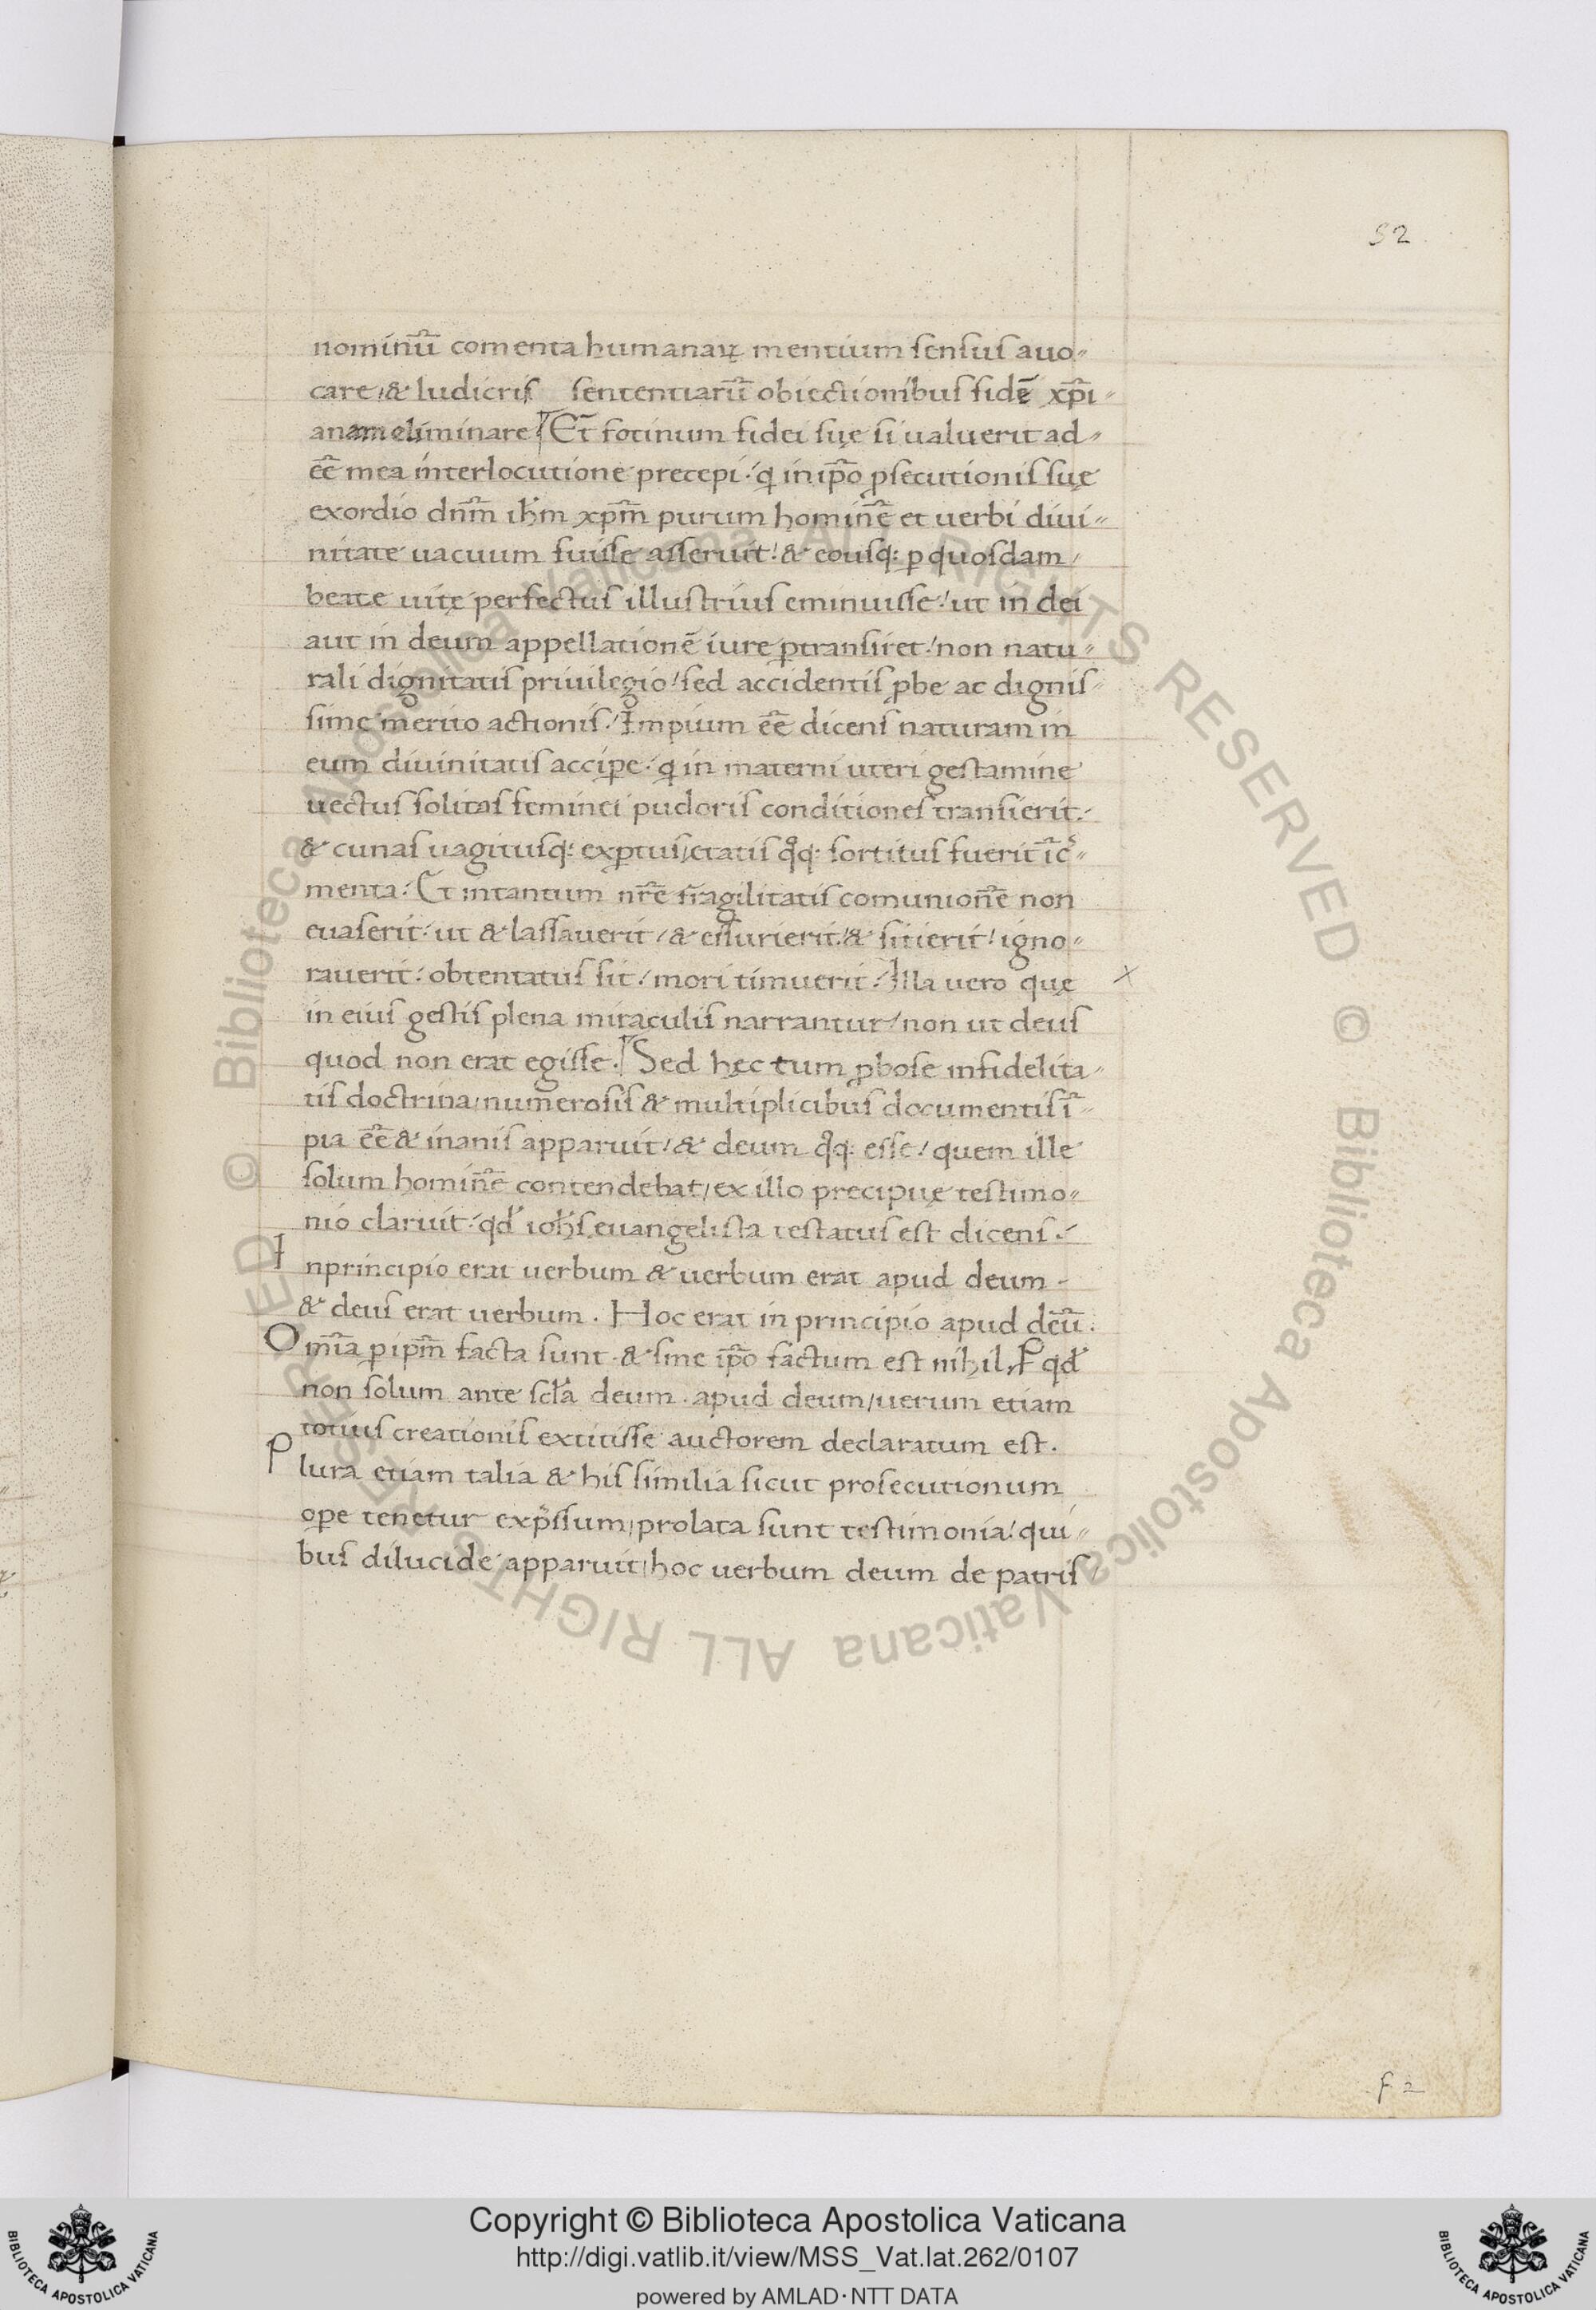 52
nominū comenta humanaꝝ mentium sensus auo-
care / & ludicris sententiarū obiectionibus fidē xp̄i-
anam eliminare. Et fotinum fidei suę si ualuerit ad-
eē mea interlocutione precepi. q in ip̄o ꝓsecutionis suę
exordio dn̄m ih̄m xp̄m purum hominē et uerbi diui-
nitate uacuum fuisse asseruit! & eousq: ꝑ quosdam
beate uitę perfectus illustrius eminuisse! ut in dei
aut in deum appellationē iure ꝑtransiret! non natu-
rali dignitatis priuilegio! sed accidentis ꝓbe ac dignis-
sime merito actionis! Impium eē dicens naturam in
eum diuinitatis accipe. q in materni uteri gestamine
uectus solitas feminei pudoris conditiones transierit.
& cunas uagitusq: exꝑtus / etatis qͦq: sortitus fuerit ic̄-
menta. Et intantum nr̄e fragilitatis comunionē non
euaserit. ut & lassauerit / & essurierit / & sitierit! igno-
rauerit. obtentatus sit. mori timuerit. Illa uero quę
in eius gestis plena miraculis narrantur / non ut deus
quod non erat egisse. Sed hęc tum ꝓbose infidelita-
tis doctrina / numerosis & multiplicibus documentis ī-
pia eē & inanis apparuit / & deum qͦq: esse / quem ille
solum hominē contendebat / ex illo precipuę testimo-
nio claruit. qd' ioh̄s euangelista testatus est dicens.
Inprincipio erat uerbum & uerbum erat apud deum -
& deus erat uerbum. Hoc erat in principio apud deū.
Omīa ꝑ ip̄m facta sunt. & sine ip̄o factum est nihil. P qd'
non solum ante scl̄a deum. apud deum / uerum etiam
totius creationis extitisse auctorem declaratum est.
Plura etiam talia & his similia sicut prosecutionum
ope tenetur exp̄ssum / prolata sunt testimonia! qui-
bus dilucide apparuit / hoc uerbum deum de patris
f 2
© Biblioteca Apostolica Vaticana ALL RIGHTS RESERVED © Biblioteca Apostolica Vaticana ALL RIGHTS RESERVED
Copyright © Biblioteca Apostolica Vaticana
http://digi.vatlib.it/view/MSS_Vat.lat.262/0107
powered by AMLAD·NTT DATA
BIBLIOTECA APOSTOLICA VATICANA
BIBLIOTECA APOSTOLICA VATICANA